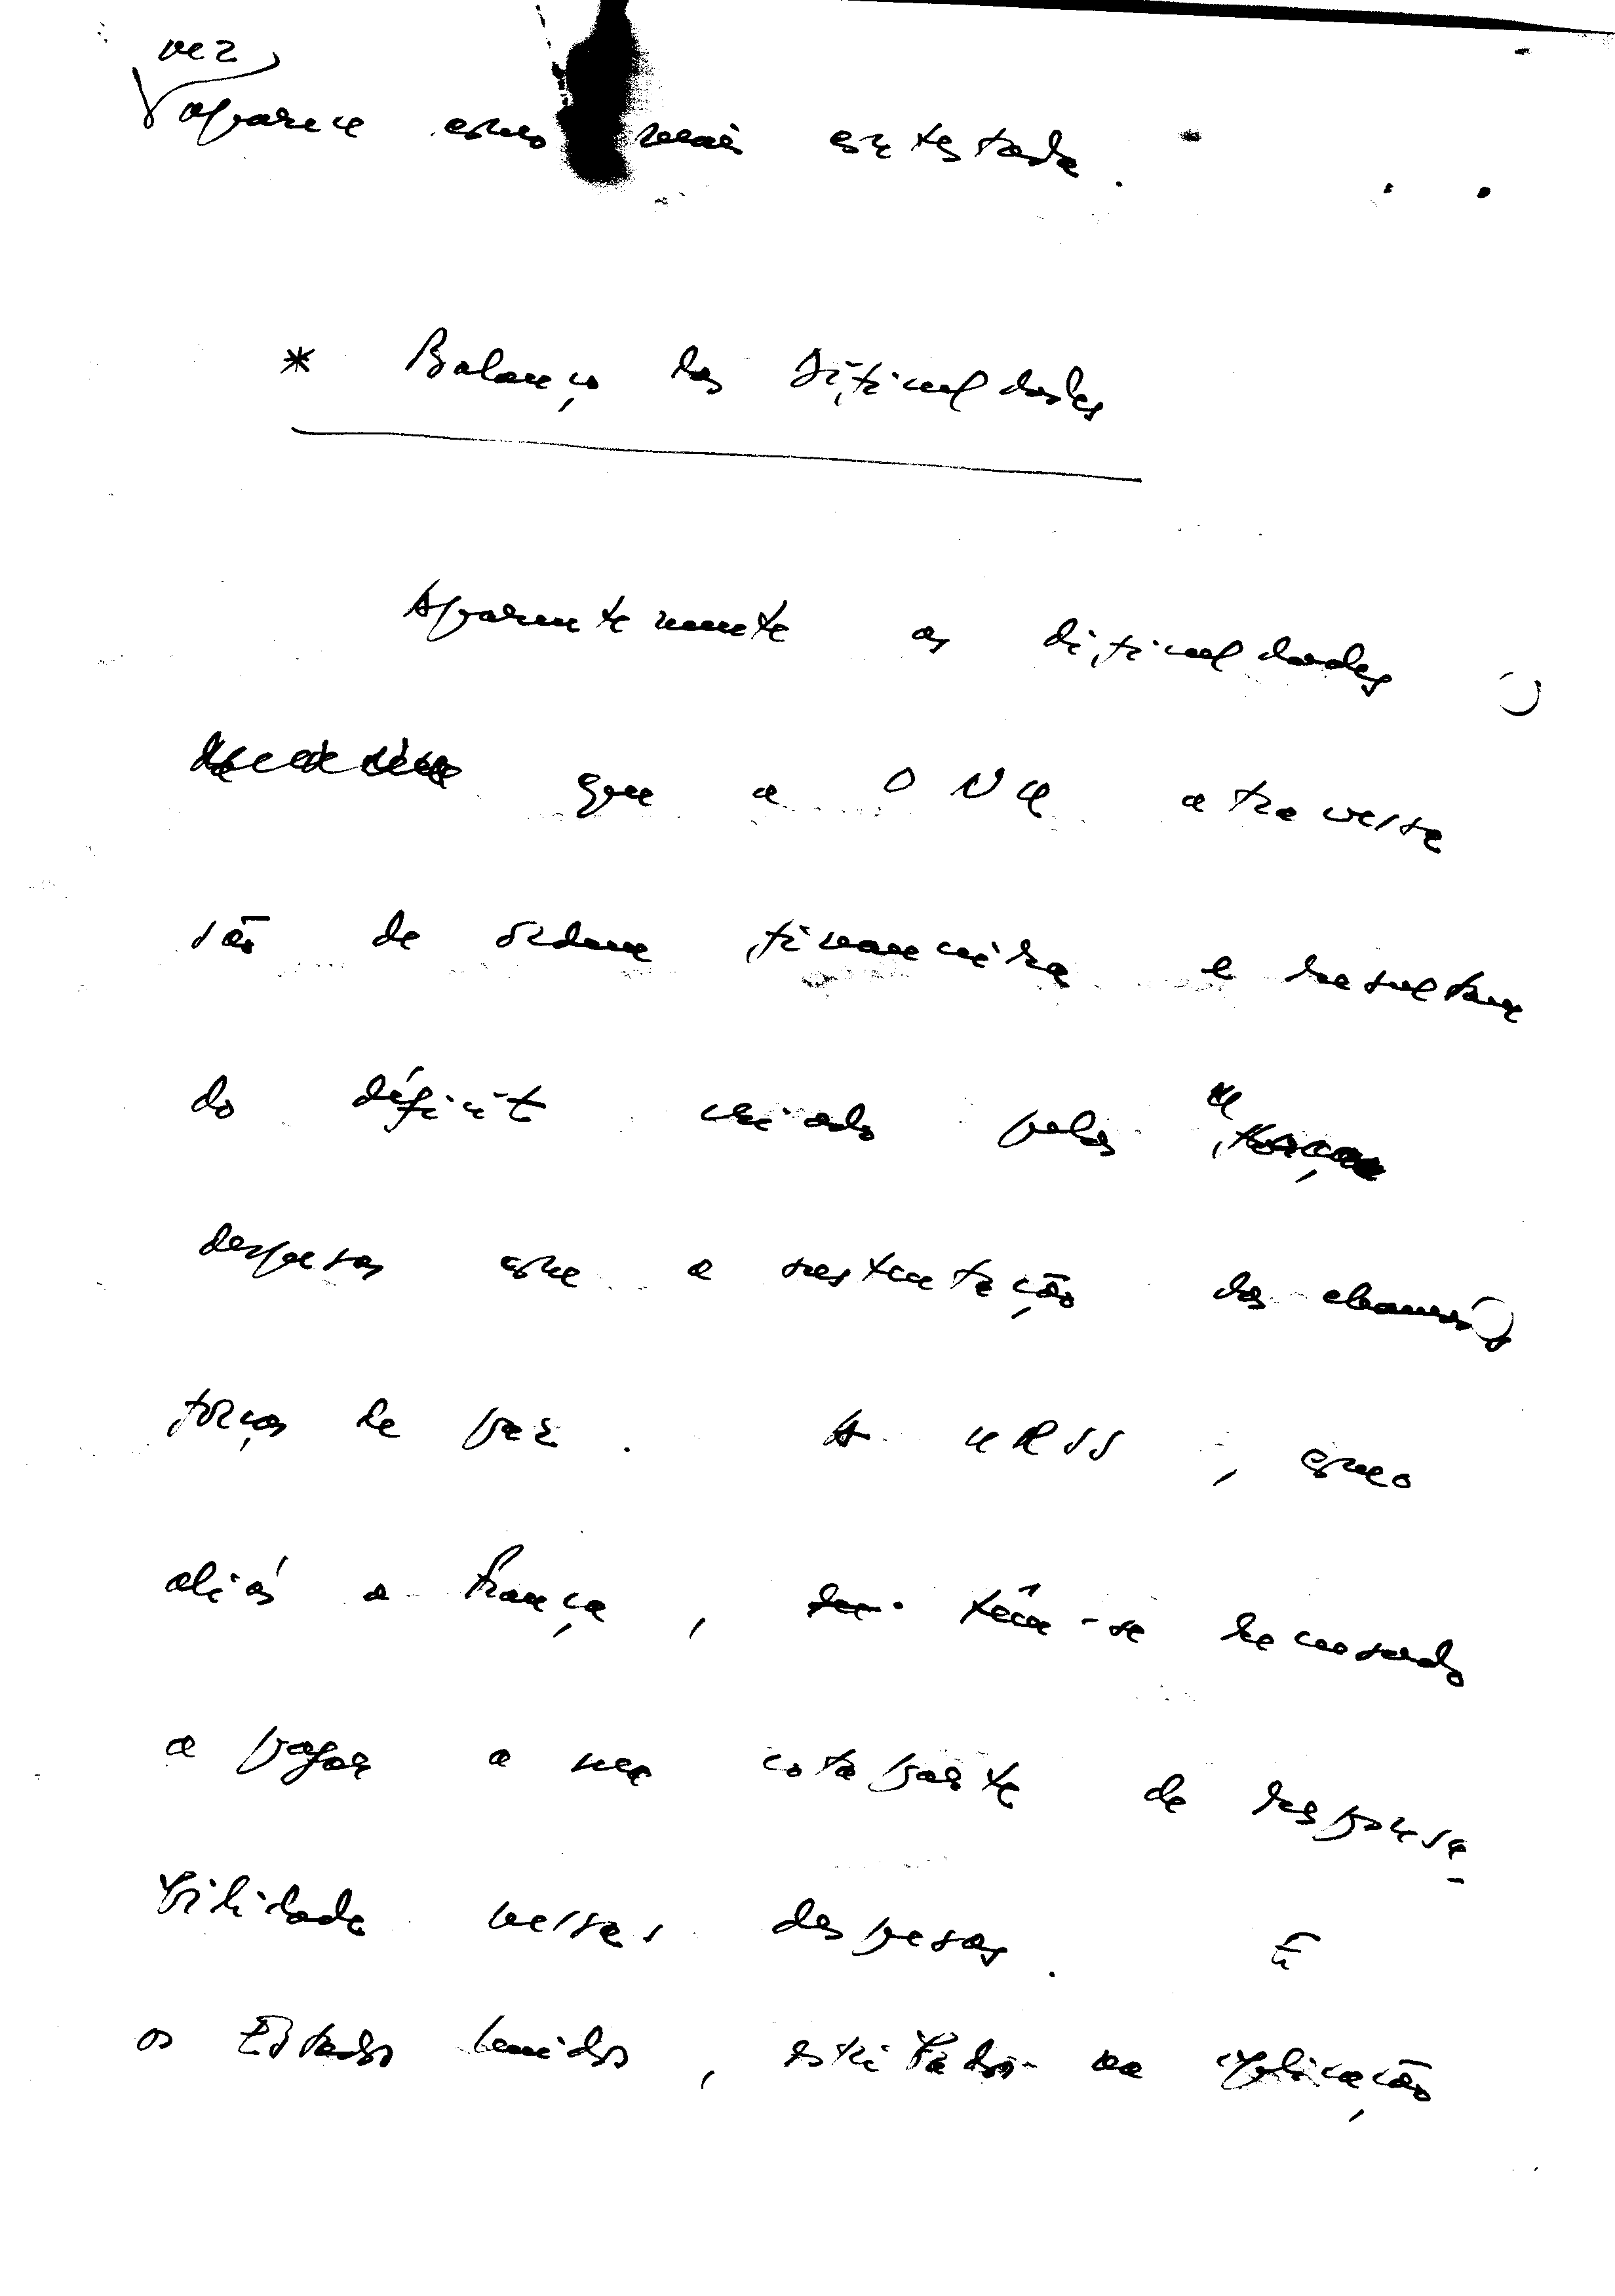 vez
aparece como mais contestada.
* Balanço das dificuldades
Aparentemente as dificuldades
que a ONU atravessa
são de ordem financeira e resultam
do déficit criado pelas
despesas com a sustentação das chamadas
forças de paz. A URSS, como
aliás a França, têm-se recusado
a pagar a sua cota parte de responsa-
bilidade nessas despesas. E
os Estados Unidos, estribados na aplicação